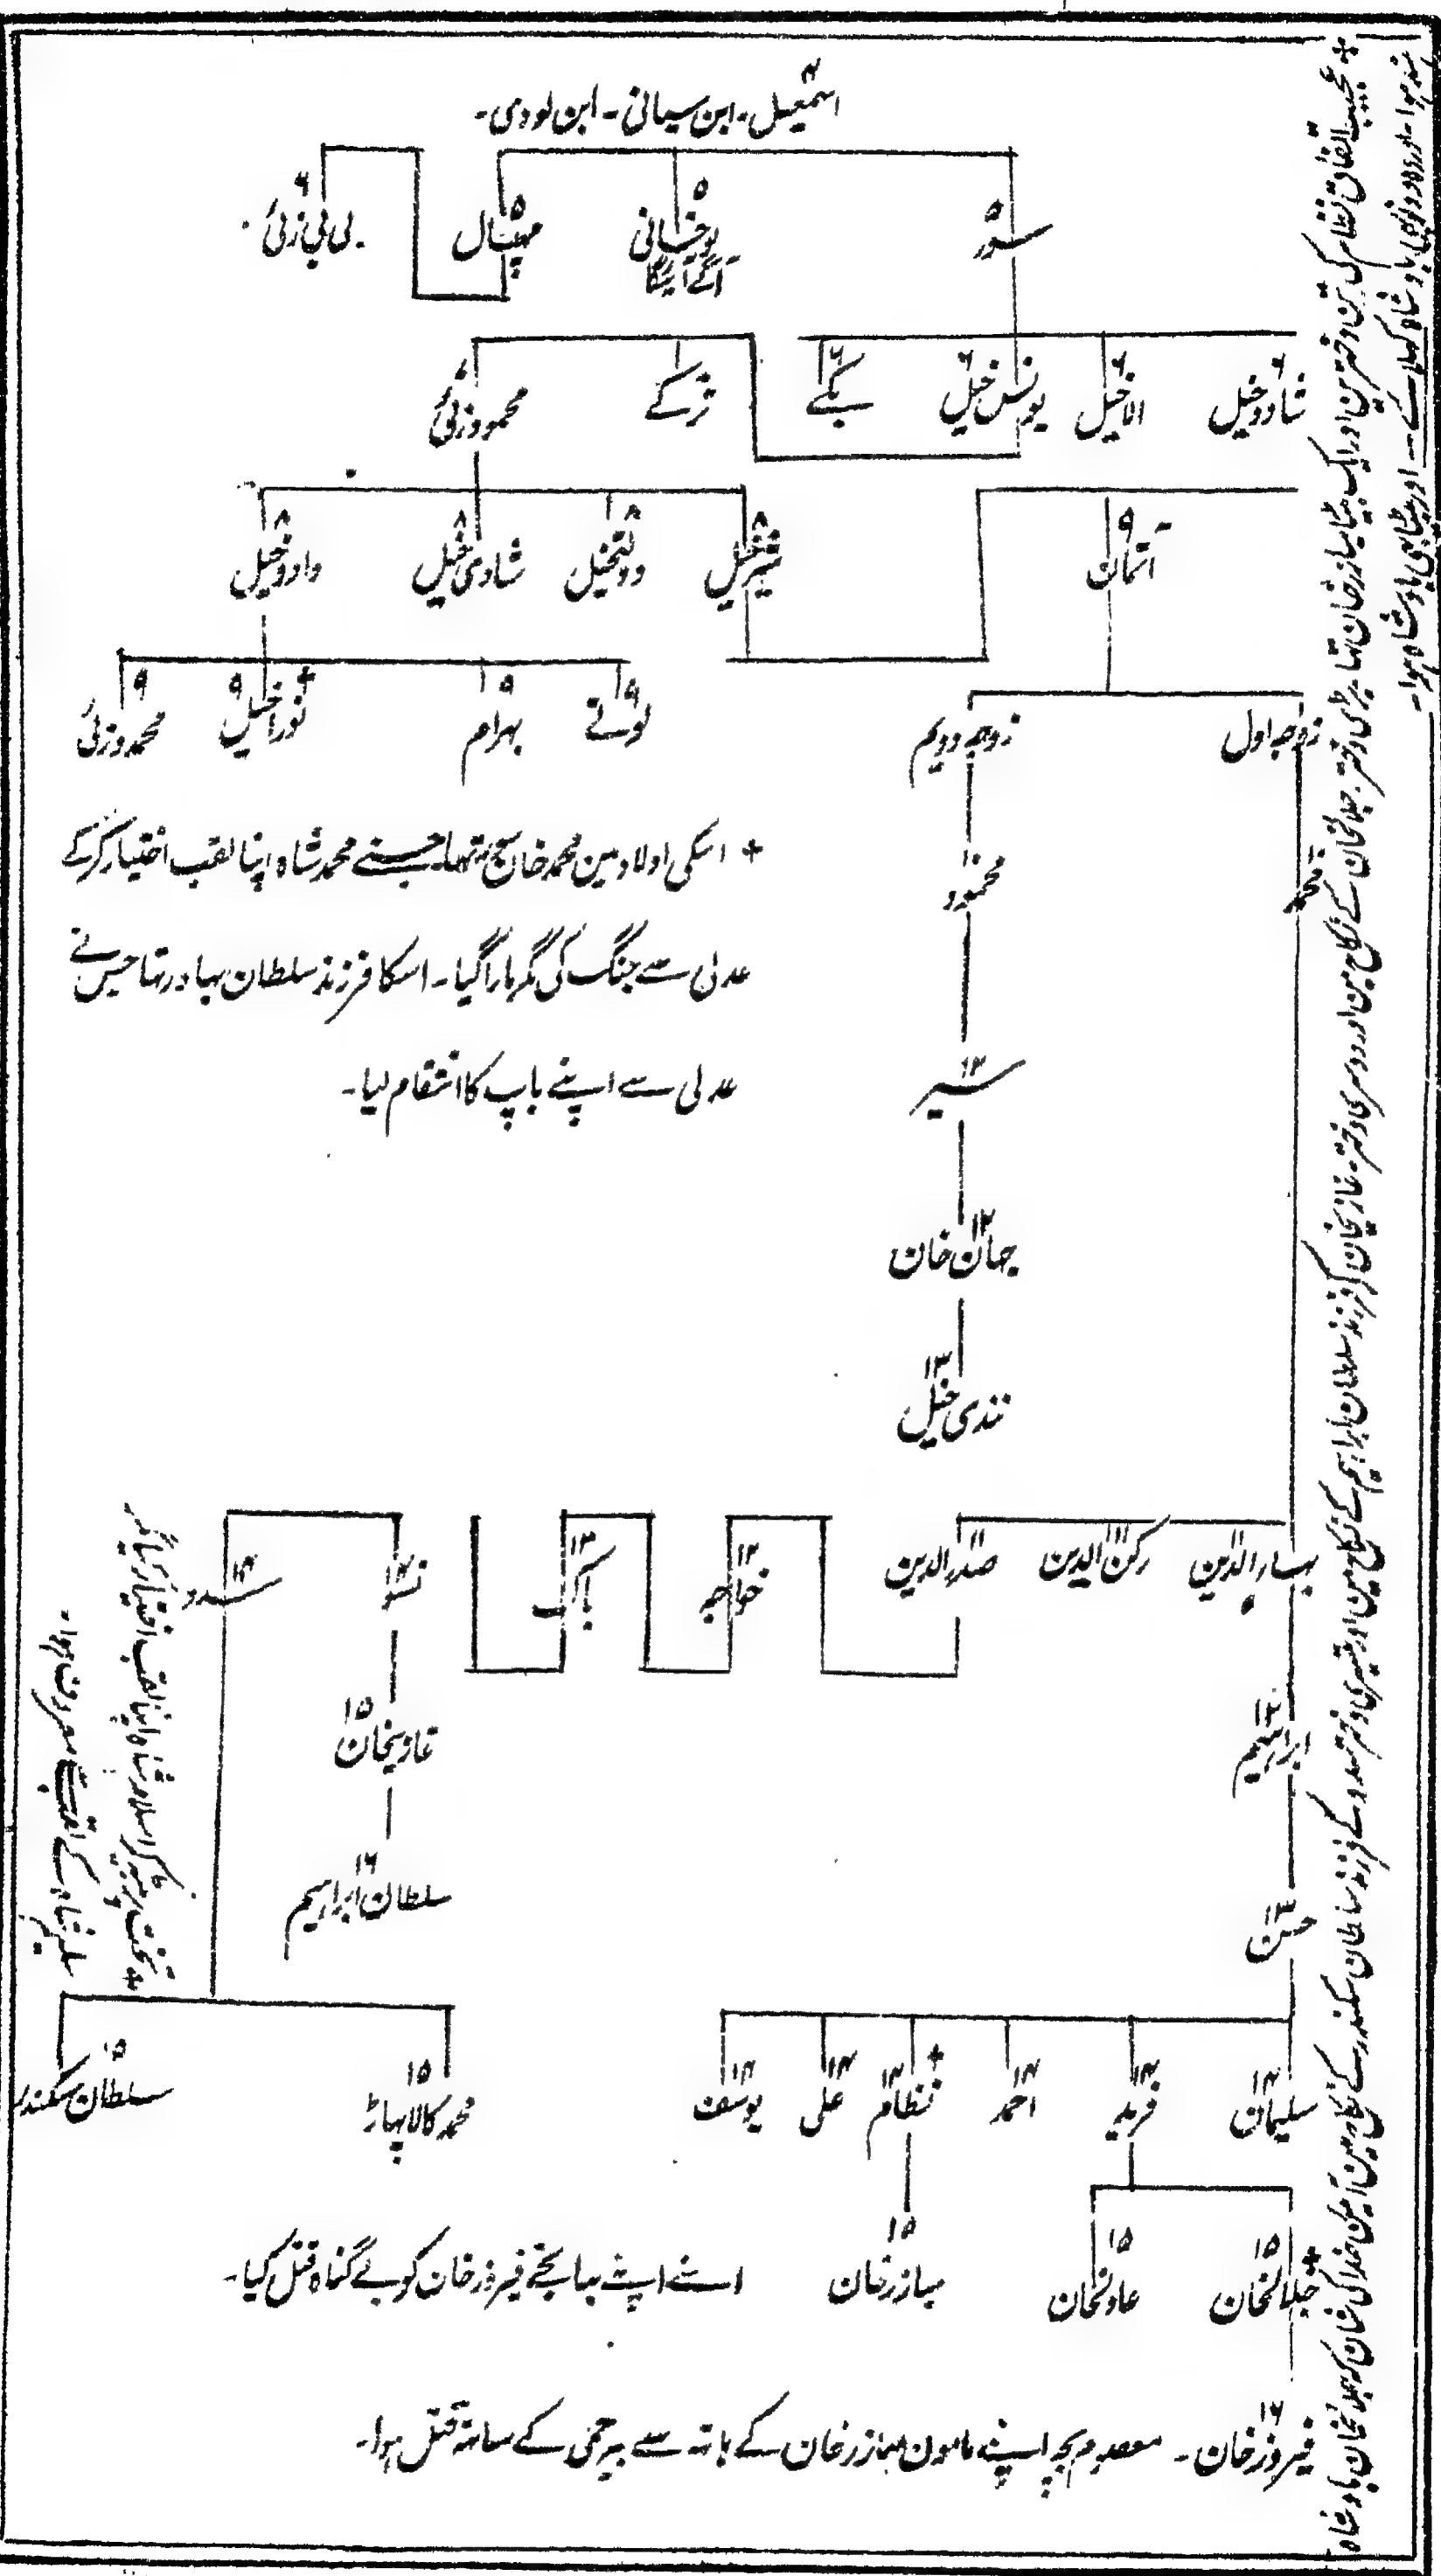 ۴
اسمٰعیل۔ ابن سیانی۔ ابن لودی۔
۵ سور
۵ یوخانی
آگے آئیگا
۵ مہپال
۶ بی بی زئی
۶ شادو خیل
۶ الاخیل
۶ یونس خیل
۶ بکے
ترکے
محمود زئی
۹ اتمان
۸ شیر خیل
۸ دولتخیل
۸ شادی خیل
۸ داؤد خیل
زوجہ اول
زوجہ دویم
۹ نونے
۹ بہرام
۹ نوراخیل +
۹ محمد وزئی
۱۰ محمد
۱۰ محمود
+ اسکی اولاد مین محمد خان سور تھا۔ جسنے محمد شاہ اپنا لقب اختیار کرکے
عدلی سے جنگ کی مگر مارا گیا۔ اسکا فرزند سلطان بہادر تھا جس نے
عدلی سے اپنے باپ کا انتقام لیا۔
۱۲ سیر
۱۲ جہان خان
۱۳ نندی خیل
۱۱ بہار الدین
۱۱ رکن الدین
۱۱ صدر الدین
۱۲ خواجہ
۱۳ باگ
۱۴ نسو
۱۴ سدو
۱۲ ابراہیم
۱۵ غازیخان
۱۳ حسن
۱۶ سلطان ابراہیم
* تخت پر بیٹھکر اسلام شاہ اپنا لقب اختیار کیا مگر
سلیم شاہ کے لقب سے معروف ہوا۔
۱۴ سلیمان
۱۴ فرید
۱۴ احمد
۱۴ نظام +
۱۴ علی
۱۴ یوسف
۱۵ محمد کالا پہاڑ
۱۵ سلطان سکندر
۱۵ جلالخان *
۱۵ عادلخان
۱۵ مبازرخان
اسنے اپنے بہانجے فیروز خان کو بے گناہ قتل کیا۔
۱۶ فیروز خان۔ معصوم بچہ اپنے مامون مبازر خان کے ہاتہ سے بیرحمی کے ساتہ قتل ہوا۔
+ عجیب اتفاق نظام کی تین دخترین اور ایک بیٹا مبازر خان تہا۔ بڑی دختر۔ جلالخان کے نکاح مین اور دوسری دختر۔ غازیخان کے فرزند سلطان ابراہیم کے نکاح مین اور تیسری دختر سدو کے فرزند سلطان سکندر کے نکاح مین آئین خدا کی شان کہ جلالخان بادشاہ
ہند ہوا۔ اور وہ دونون بہی بادشاہ کہلائے۔ اور بیٹا بہی بادشاہ ہوا۔